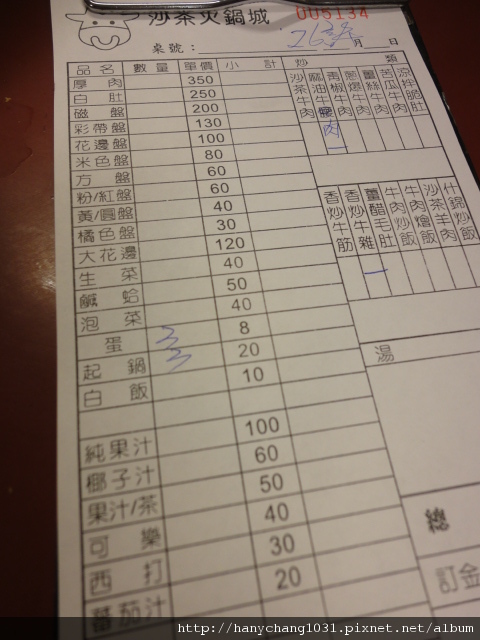 沙茶火鍋城
005134
桌號：
月 日
品名 數量 單價 小計
厚肉 350
白肚 250
磁盤 200
彩帶盤 130
花邊盤 100
米色盤 80
方盤 60
粉/紅盤 60
黃/圓盤 40
橘色盤 30
大花邊 120
生菜 40
鹹蛤 50
泡菜 40
蛋 3 8
起鍋 3 20
白飯 10
純果汁 100
椰子汁 60
果汁/茶 50
可樂 40
西打 30
蕃茄汁 20
炒類
沙茶牛肉
麻油牛腰
肉 一
青椒牛肉
蔥爆牛肉
薑絲牛肉
苦瓜牛肉
涼拌脆肚
香炒牛筋
香炒牛雜
薑醋毛肚 一
牛肉炒飯
牛肉燴飯
沙茶羊肉
什錦炒飯
湯
總
訂金
http://hanychang1031.pixnet.net/album